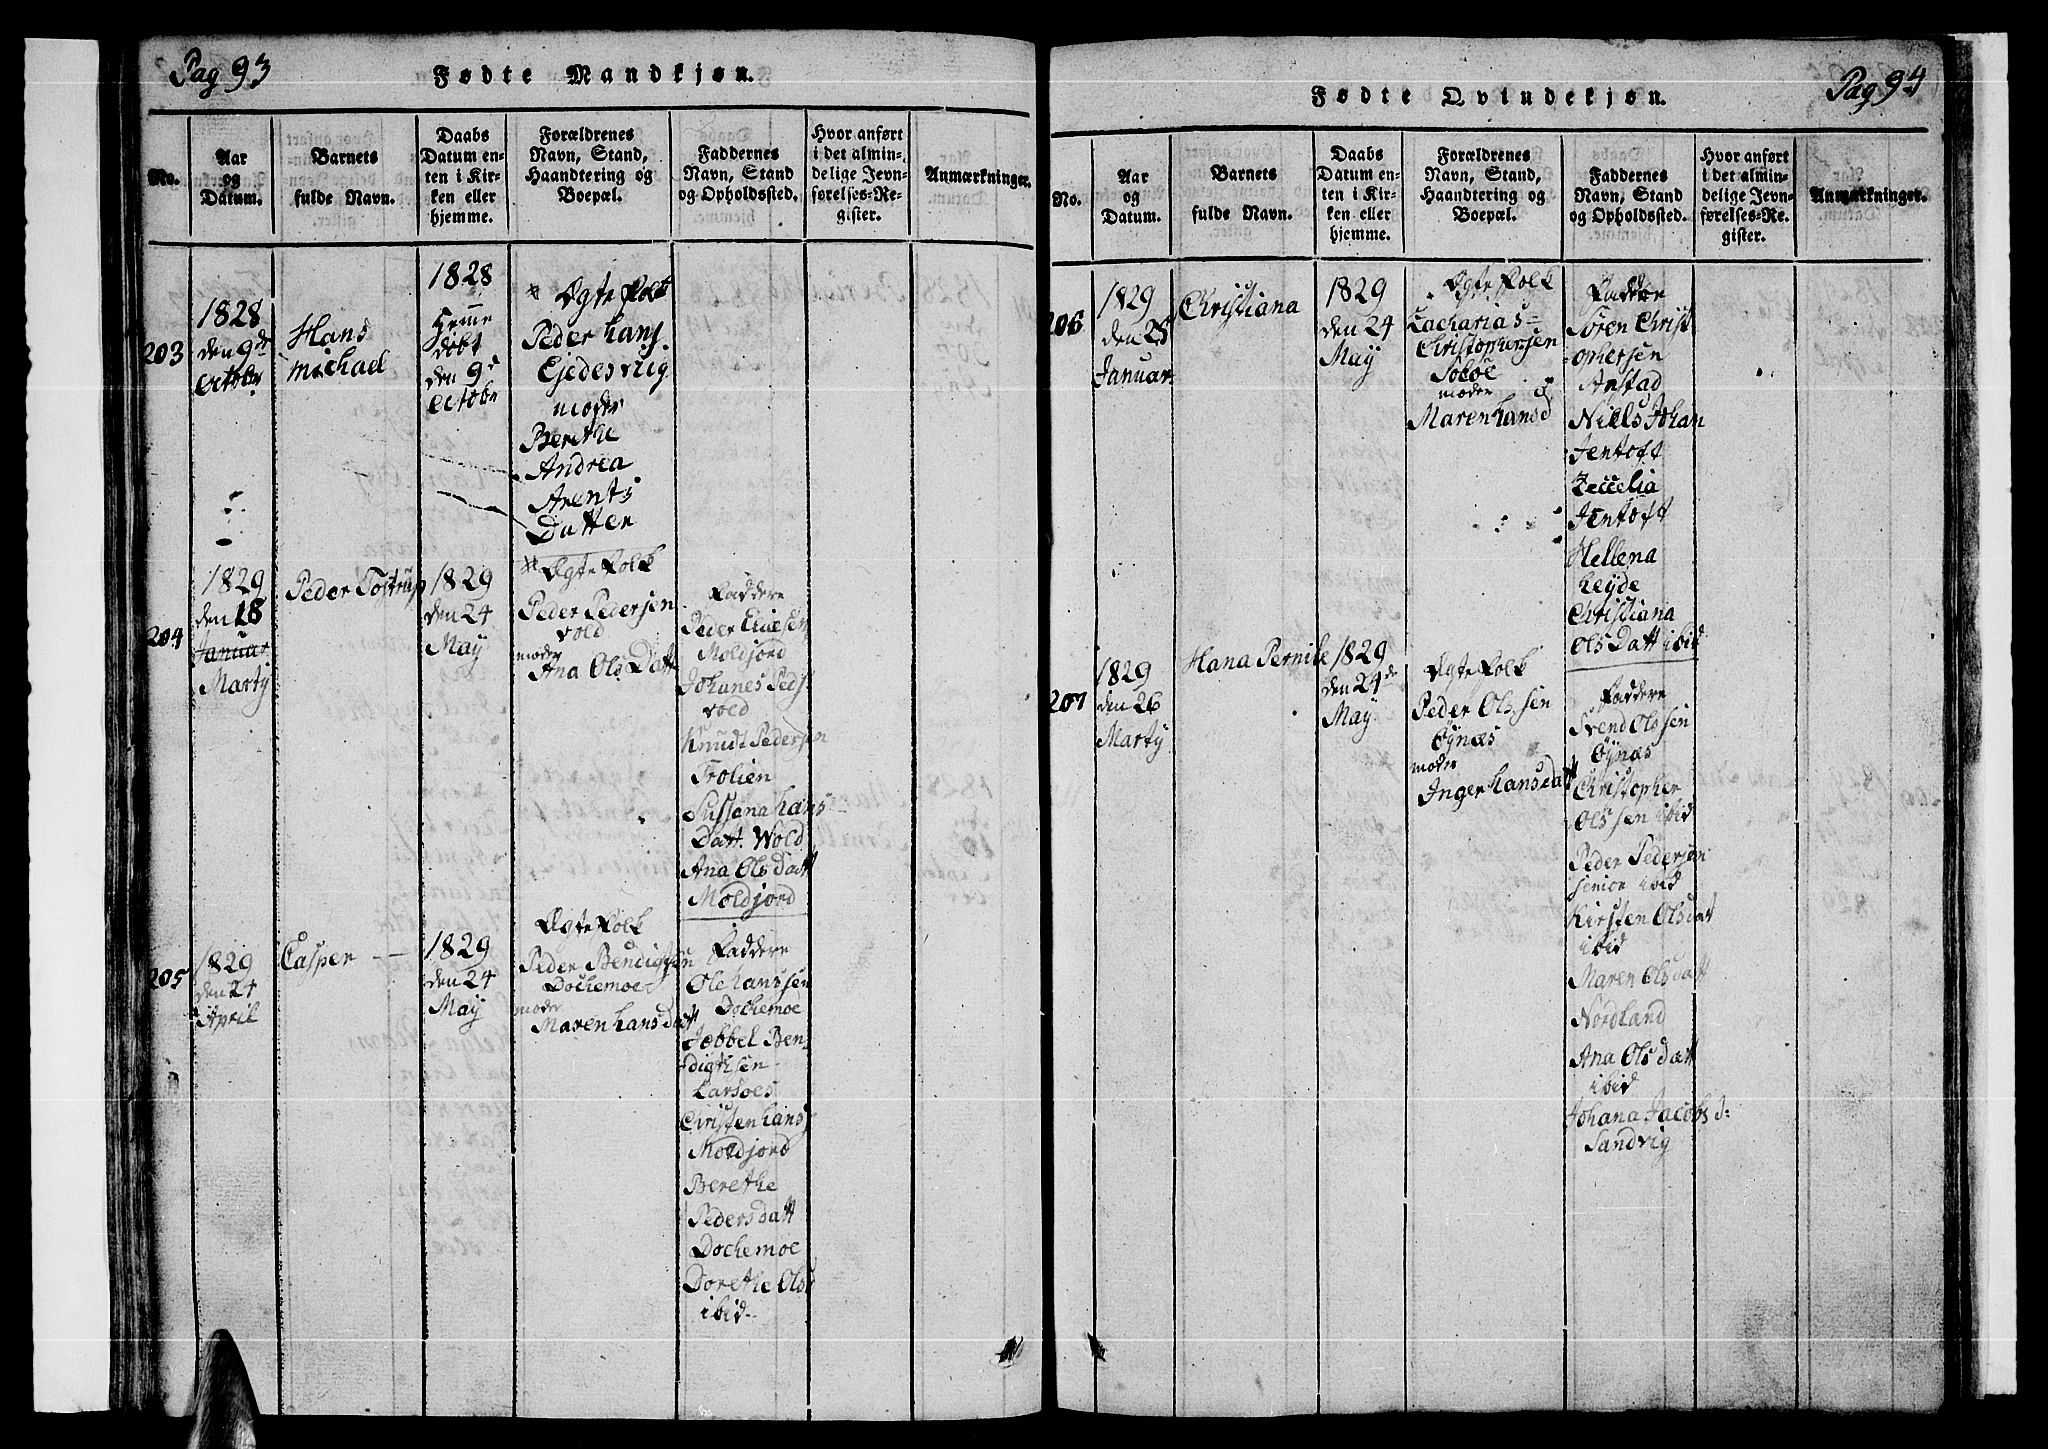 Pag 93
Fødte Mandkjøn.
No.
Aar
og
Datum.
Barnets
fulde Navn.
Daabs
Datum en-
ten i Kir-
ken eller
hjemme.
Forældrenes
Navn, Stand,
Haandtering og
Boepæl.
Faddernes
Navn, Stand
og Opholdssted.
Hvor anført
i det almin-
delige Jevn-
førelses-Re-
gister.
Anmærkninger.
203
1828
den 9de
October
Hans
Michael
1828
Hemme
döbt
den 9d
Octobr
Ægte Folk
Peder Hans
moder
Berethe
Andrea
Arents
Datter
204
1829
den 18
Januar
Marty
Peder Tostrup
1829
den 24
May
Ægte Folk
Peder Pedersen
Vold
moder
Ana Ols Datt
Faddere
Peder
Moldjord
Johanes Peds
Vold
Knudt Pedersen
Trolien
Sussana Hans
Datt. Wold
Ana Ols Datt
Moldjord
205
1829
den 24
April
Casper
1829
den 24
May
Ægte Folk
Peder Bendigtsen
Dochemoe
moder
Maren Hans Datt
Faddere
Ole Hanssen
Dochemoe
Jobbel Ben-
digtsen
Larsoes
Christen Hans
Moldjord
Berethe
Peders datt
Dochemoe
Dorethe Olsd
ibid
Pag 94
Fødte Qvindekjøn.
No.
Aar
og
Datum.
Barnets
fulde Navn.
Daabs
Datum en-
ten i Kir-
ken eller
hjemme.
Forældrenes
Navn, Stand,
Haandtering og
Boepæl.
Faddernes
Navn, Stand
og Opholdssted.
Hvor anført
i det almin-
delige Jevn-
førelses-Re-
gister.
Anmærkninger.
206
1829
den 25
Januar
Christiana
1829
den 24
May
Ægte Folk
Zacharias
Christophersen
Soløe
moder
Maren Hansd
Faddere
Søren Christ
ophersen
Anstad
Niels Johan
Jentoft
Zeccelia
Jentoft
Hellena
Heyde
Christiana
Ols Datt ibid
207
1829
den 26
Marty
Hana Pernile
1829
den 24de
May
Ægte Folk
Peder Olssen
Øynæs
moder
Inger Hansdatt
Faddere
Svend Olssen
Øynæs
Christopher
Olssen ibid
Peder Pedersen
senior ibid
Kirsten Olsdat
ibid
Maren Olsdatt
Nordland
Ana Ols Datt
ibid
Johana Jacobsd:
Sandvig